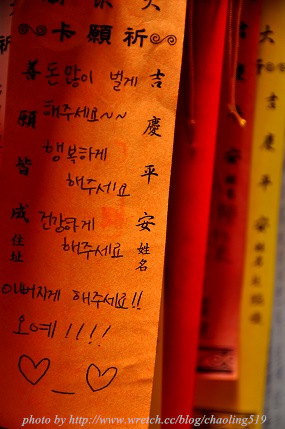 祈願卡
善願皆成
住址
吉慶平安
姓名
돈많이 벌게
해주세요~~
행복하게
해주세요
건강하게
해주세요
이뻐지게 해주세요!!
오예!!!!
♡_♡
大
吉慶平安
photo by http://www.wretch.cc/blog/chaoling519